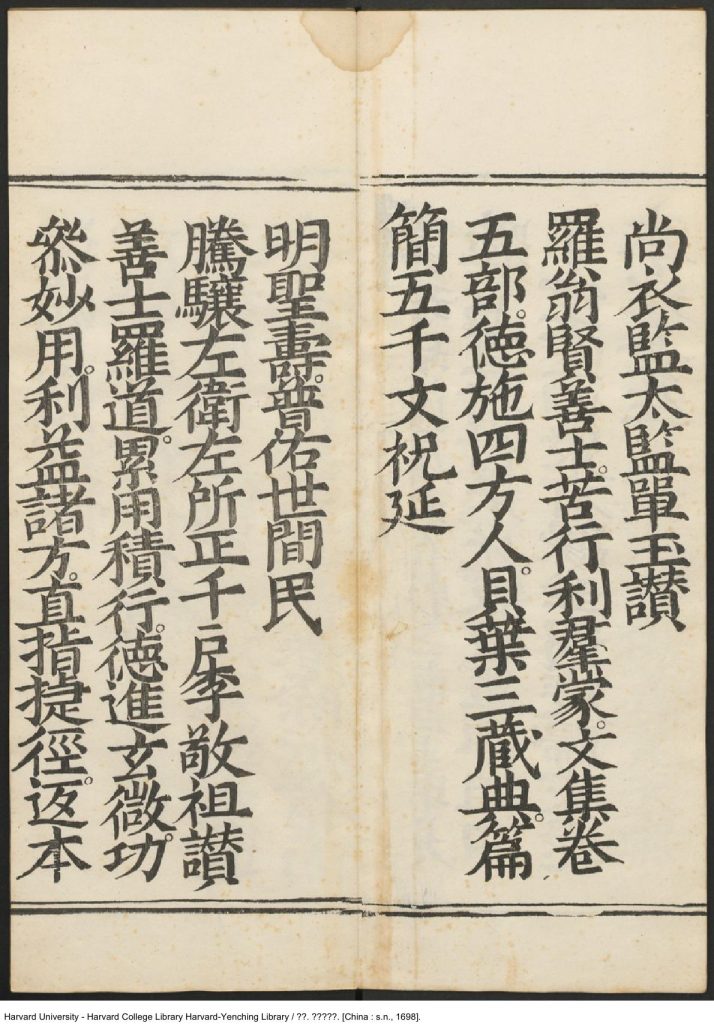 尚衣監太監單玉讃
羅翁賢善士。苦行利羣蒙。文集卷
五部。德施四方人。貝葉三藏典。篇
簡五千文祝延
明聖壽。普佑世間民
騰驤左衛左所正千户李敬祖讃
善士羅道。累用積行。德進玄微功。
叅妙用。利益諸方。直指捷徑。返本
Harvard University - Harvard College Library Harvard-Yenching Library / ??. ?????. [China : s.n., 1698].